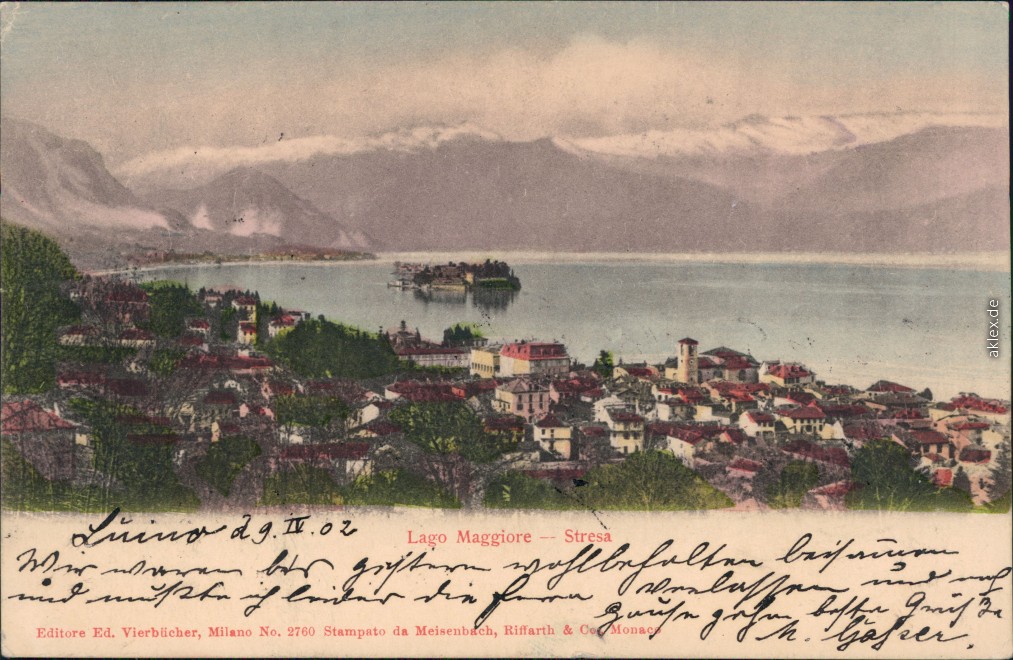 aklex.de
Luino d 9. IV. 02
Lago Maggiore — Stresa
Wir waren bis gestern wohlbehalten beisamen
und mußte ich leider die Frau verlassen und nach
Hause gehn beste Grüße
Editore Ed. Vierbücher, Milano No. 2760 Stampato da Meisenbach, Riffarth & Co. Monaco